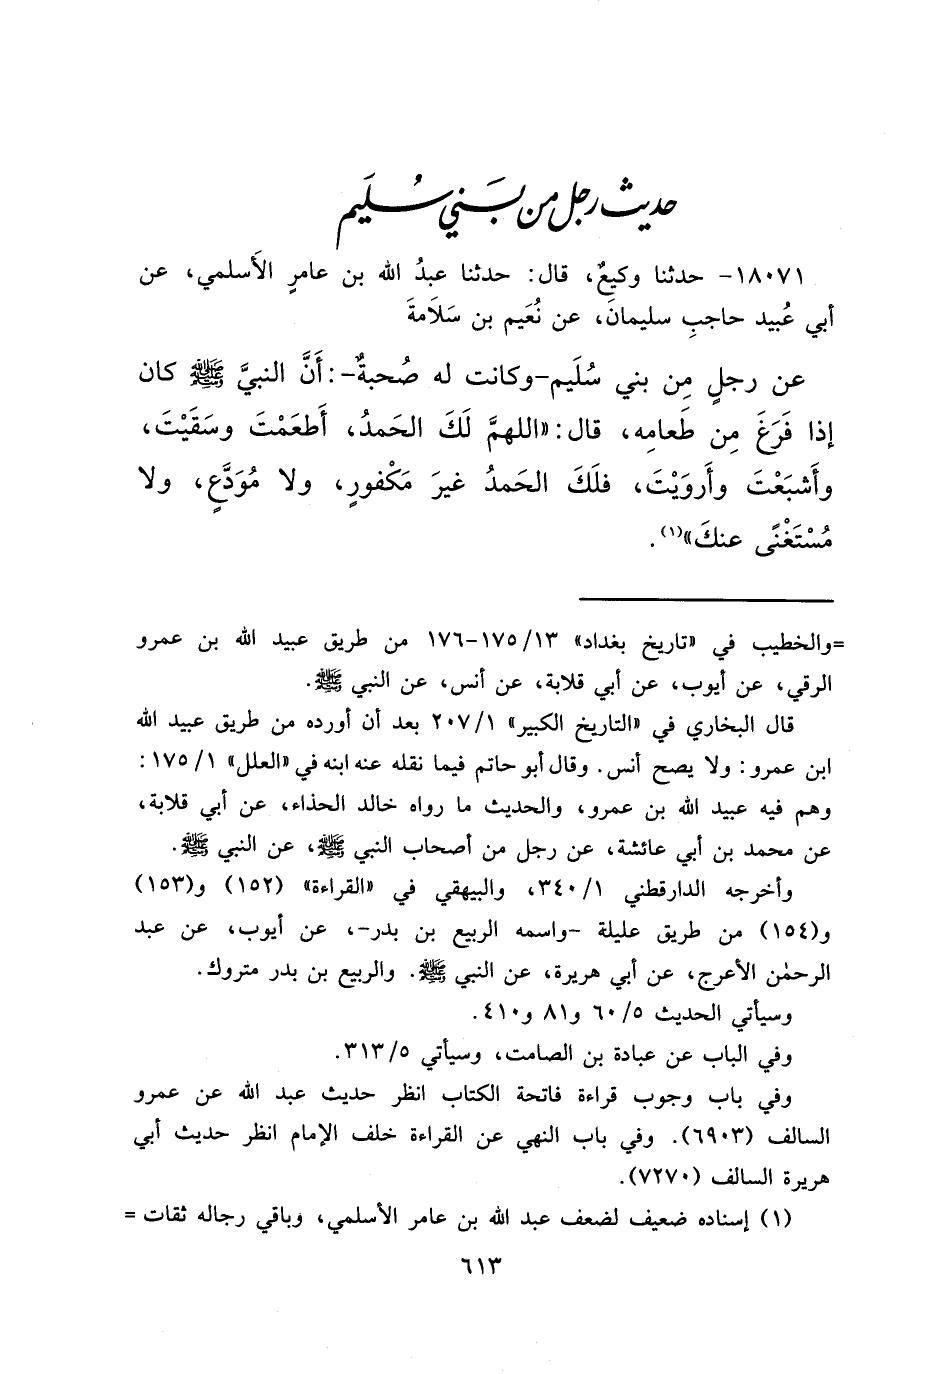 حديث رجل من بَني سُلَيم
١٨٠٧١- حدثنا وكيعٌ، قال: حدثنا عبدُ الله بن عامرٍ الأَسلمي، عن
أبي عُبيد حاجبِ سليمانَ، عن نُعَيم بن سَلَامةَ
عن رجلٍ مِن بني سُلَيم -وكانت له صُحبةٌ-: أَنَّ النبيَّ ﷺ كان
إذا فَرَغَ مِن طَعامِه، قال: «اللهمَّ لَكَ الحَمدُ، أَطعَمْتَ وسَقَيْتَ،
وأَشبَعْتَ وأَرويْتَ، فلَكَ الحَمدُ غيرَ مَكْفورٍ، ولا مُوَدَّعٍ، ولا
مُسْتَغْنًى عنكَ»(١).
=والخطيب في «تاريخ بغداد» ١٣/ ١٧٥-١٧٦ من طريق عبيد الله بن عمرو
الرقي، عن أيوب، عن أبي قلابة، عن أنس، عن النبي ﷺ.
قال البخاري في «التاريخ الكبير» ١/ ٢٠٧ بعد أن أورده من طريق عبيد الله
ابن عمرو: ولا يصح أنس. وقال أبو حاتم فيما نقله عنه ابنه في «العلل» ١/ ١٧٥:
وهم فيه عبيد الله بن عمرو، والحديث ما رواه خالد الحذاء، عن أبي قلابة،
عن محمد بن أبي عائشة، عن رجل من أصحاب النبي ﷺ، عن النبي ﷺ.
وأخرجه الدارقطني ١/ ٣٤٠، والبيهقي في «القراءة» (١٥٢) و(١٥٣)
و(١٥٤) من طريق عليلة -واسمه الربيع بن بدر-، عن أيوب، عن عبد
الرحمٰن الأعرج، عن أبي هريرة، عن النبي ﷺ. والربيع بن بدر متروك.
وسيأتي الحديث ٥/ ٦٠ و٨١ و٤١٠.
وفي الباب عن عبادة بن الصامت، وسيأتي ٥/ ٣١٣.
وفي باب وجوب قراءة فاتحة الكتاب انظر حديث عبد الله عن عمرو
السالف (٦٩٠٣). وفي باب النهي عن القراءة خلف الإمام انظر حديث أبي
هريرة السالف (٧٢٧٠).
(١) إسناده ضعيف لضعف عبد الله بن عامر الأسلمي، وباقي رجاله ثقات =
٦١٣